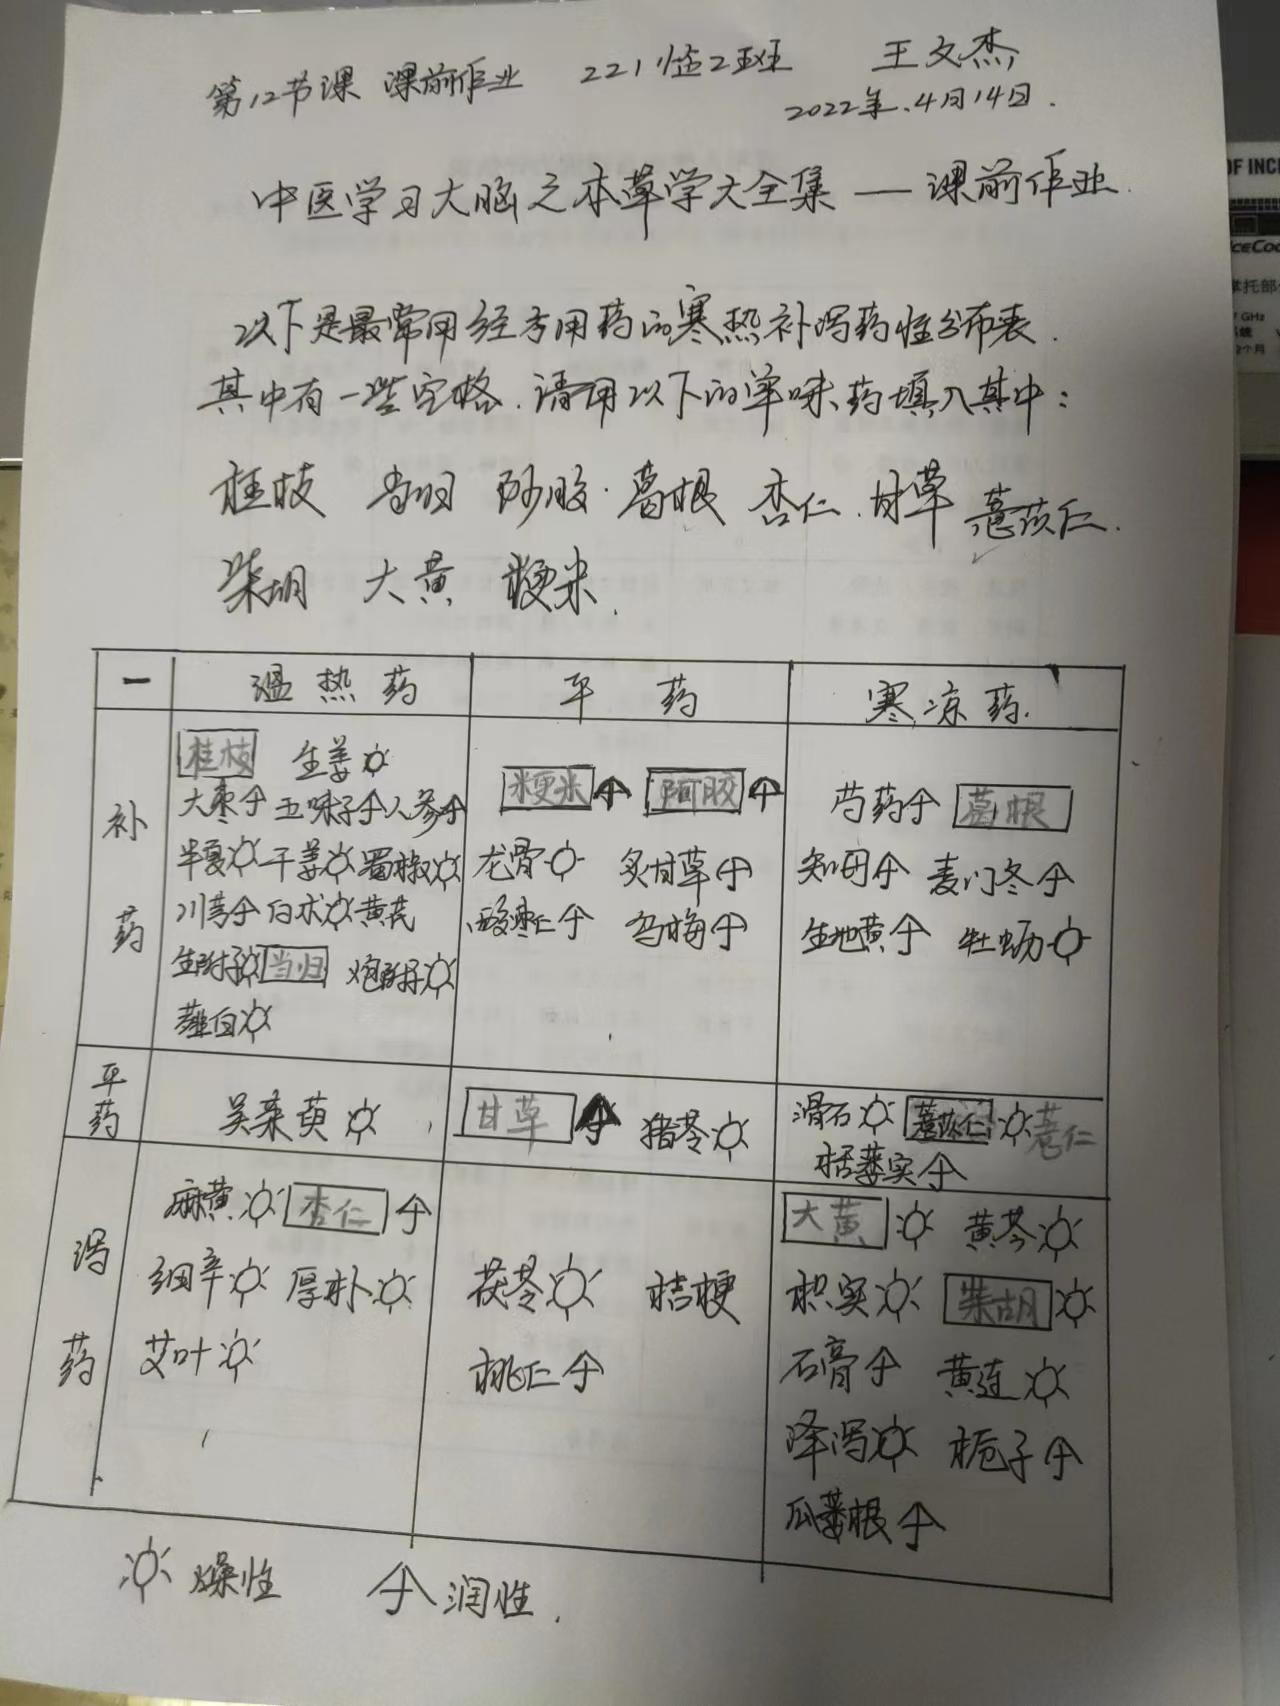 第12节课 课前作业 221临2班 王文杰
2022年.4月14日.
中医学习大脑之本草学大全集 — 课前作业.
以下是最常用经方用药的寒热补泻药性分布表.
其中有一些空格.请用以下的单味药填入其中:
桂枝 当归 阿胶.葛根 杏仁.甘草 薏苡仁.
柴胡 大黄 粳米.
一 温热药 平药 寒凉药.
补药
桂枝 生姜
大枣 五味子 人参
半夏 干姜 蜀椒
川芎 白术 黄芪
生附子 当归 炮附子
薤白
粳米 阿胶
龙骨 炙甘草
酸枣仁 乌梅
芍药 葛根
知母 麦门冬
生地黄 牡蛎
平药
吴茱萸
甘草 猪苓
滑石 薏苡仁 薏仁
栝蒌实
泻药
麻黄 杏仁
细辛 厚朴
艾叶
茯苓 桔梗
桃仁
大黄 黄芩
枳实 柴胡
石膏 黄连
泽泻 栀子
瓜蒌根
燥性 润性.
OF INC
iceCoo
摩托部
GHz
2个月